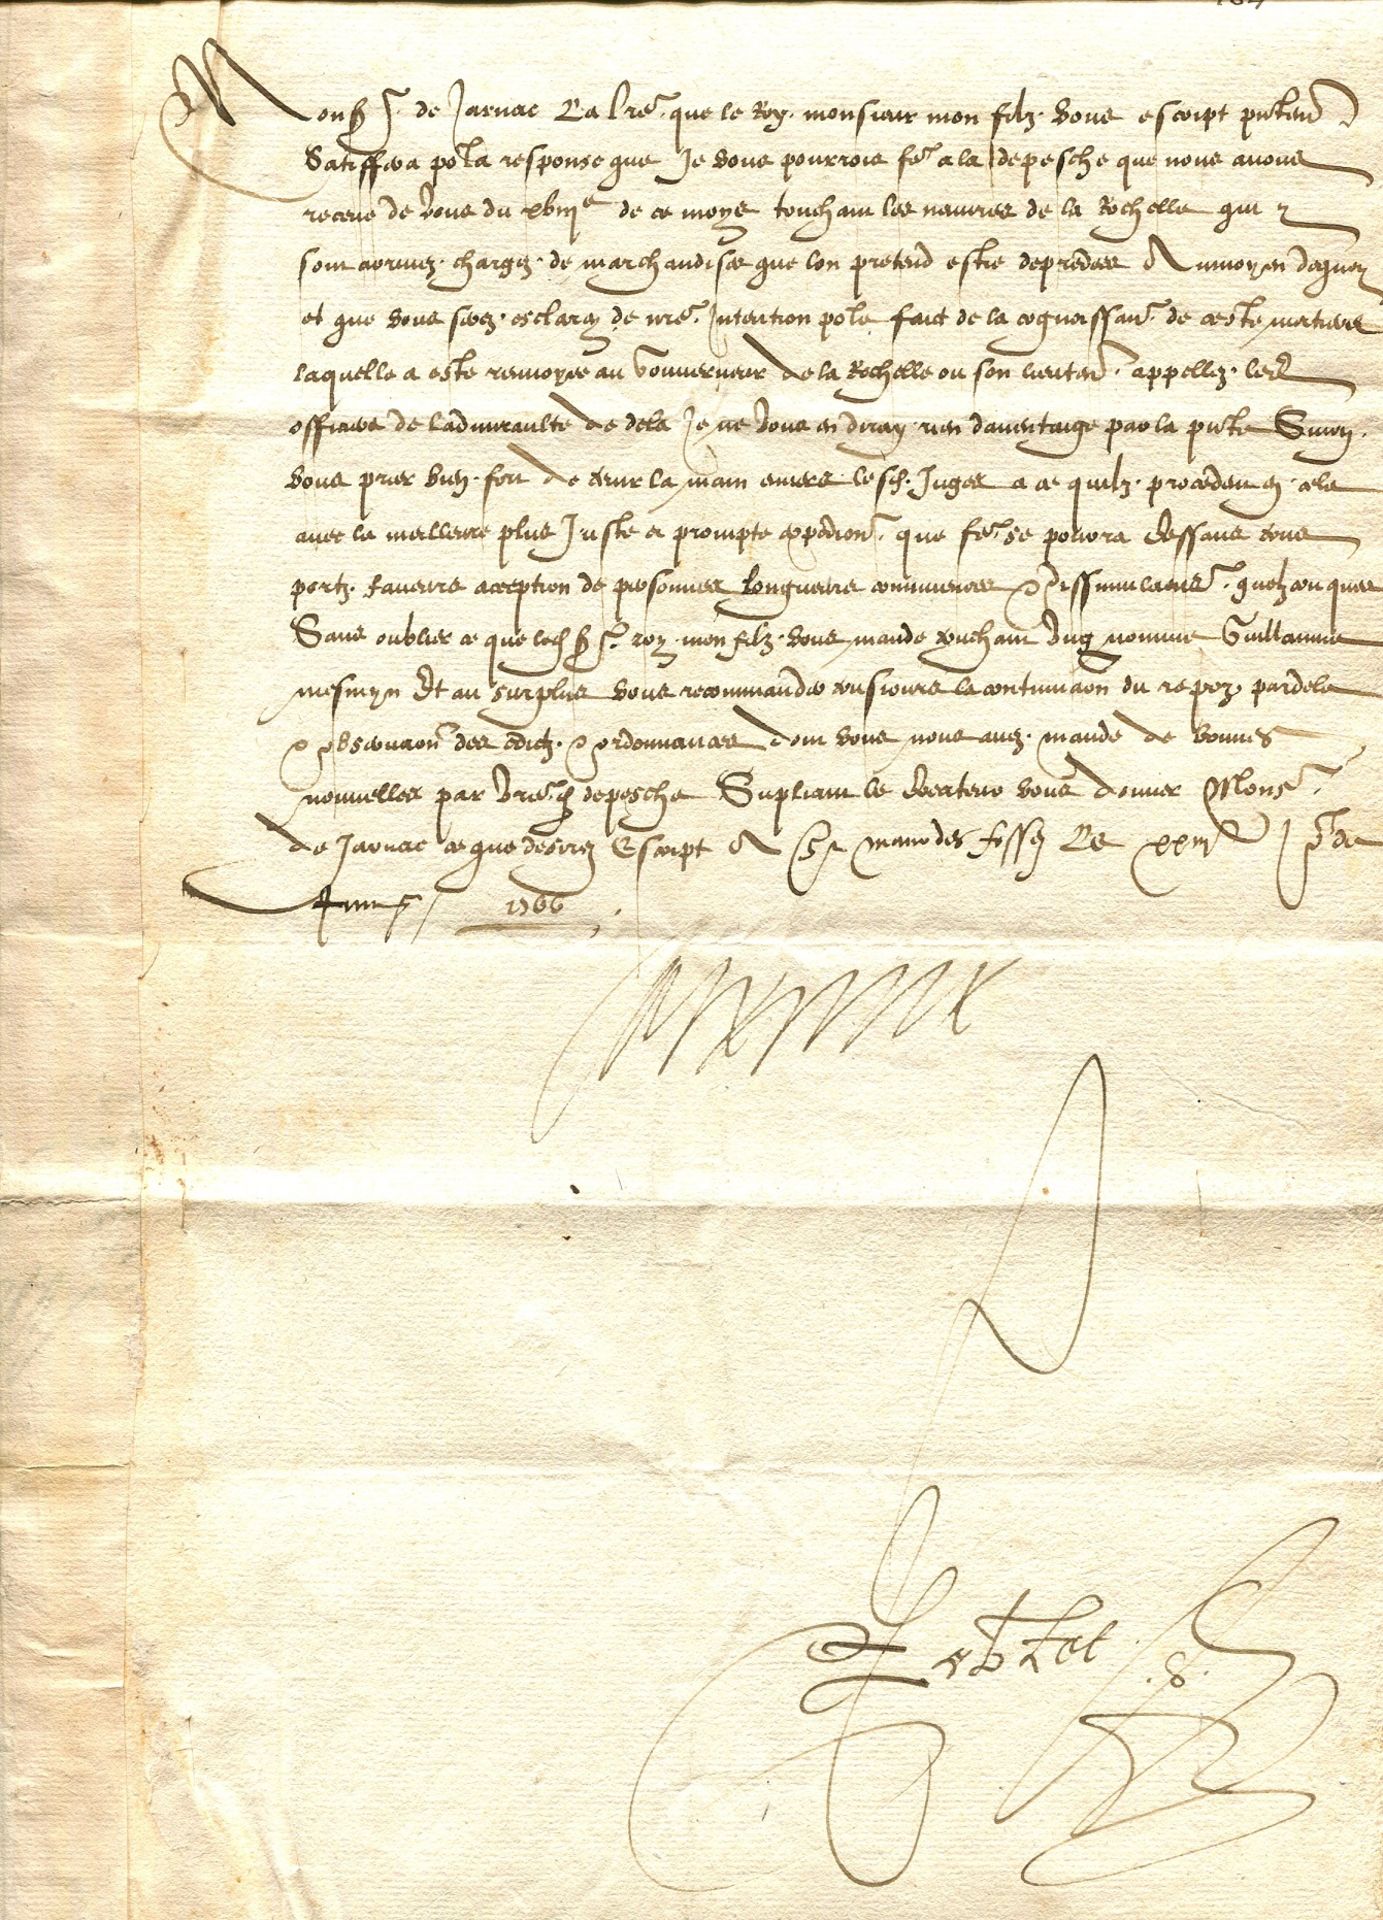 Mons.r de Jarnac La lre que le Roy monsieur mon filz vous escript presentem.t
Satisffera po.r la response que Je vous pourrois fe.r a la depesche que nous avons
receue de vous du xviij.e de ce moys touchant les navires de la Rochelle qui y
sont arrivez chargez de marchandises que lon pretend estre depredees Au moyen dequoy
et que vous serez esclarcy de nre Intention po.r le faict de la cognoissan.ce de ceste matiere
laquelle a este renvoyee au Gouverneur de la Rochelle ou son lieuten.t appellez les
officiers de ladmiraulte de dela Je ne vous en diray rien davantaige par la pnte Sinon
vous prier bien fort de tenir la main envers lesd. Juges a ce quilz procedent en cela
avec la meilleure plus Juste et prompte expedion que fe.r se pourra Et sans tous
portz faveurs acception de personnes longueurs connivences & dissimulations quelzconques
Sans oublier ce que led. s.r roy mon filz vous mande touchant Ung nomme Guillaume
mesmyn Et au surplus vous recommander tousiours la continuaon du repoz par dela
& observaon des edictz & ordonnances dont vous nous avez mande de bonnes
nouvelles par vre.d depesche Supliant le Createur vous donner Mons.r
de Jarnac ce que desirez Escript A St Maur des fossez Le xxiij.e J.r de
1566
Caterine
De Laubespine